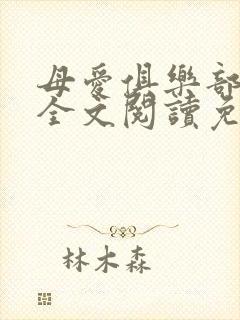 母愛俱樂部
全文閱讀免
林木森